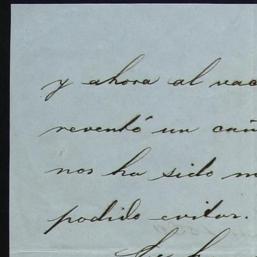 y ahora al vac
reventó un cañ
nos ha sido m
podido evitar.